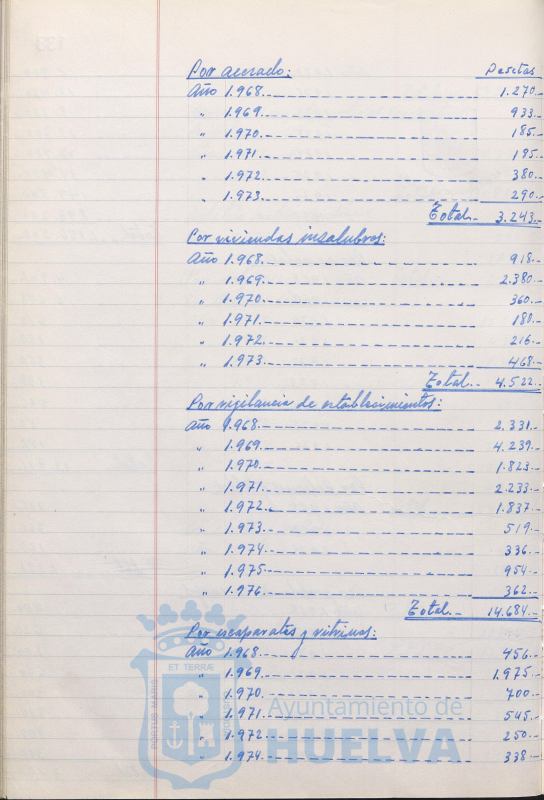 Por acerado: Pesetas
Año 1.968.- 1.270.-
" 1.969.- 933.-
" 1.970.- 185.-
" 1.971.- 185.-
" 1.972.- 380.-
" 1.973.- 290.-
Total.- 3.243.-
Por viviendas insalubres:
Año 1.968.- 918.-
" 1.969.- 2.380.-
" 1.970.- 360.-
" 1.971.- 180.-
" 1.972.- 216.-
" 1.973.- 468.-
Total.- 4.522.-
Por vigilancia de establecimientos:
Año 1.968.- 2.331.-
" 1.969.- 4.239.-
" 1.970.- 1.823.-
" 1.971.- 2.233.-
" 1.972.- 1.837.-
" 1.973.- 519.-
" 1.974.- 336.-
" 1.975.- 954.-
" 1.976.- 362.-
Total.- 14.684.-
Por escaparates y vitrinas:
Año 1.968.- 456.-
" 1.969.- 1.975.-
" 1.970.- 700.-
" 1.971.- 545.-
" 1.972.- 250.-
" 1.974.- 338.-
ET TERRÆ
PORTUS MARIS
Ayuntamiento de
HUELVA